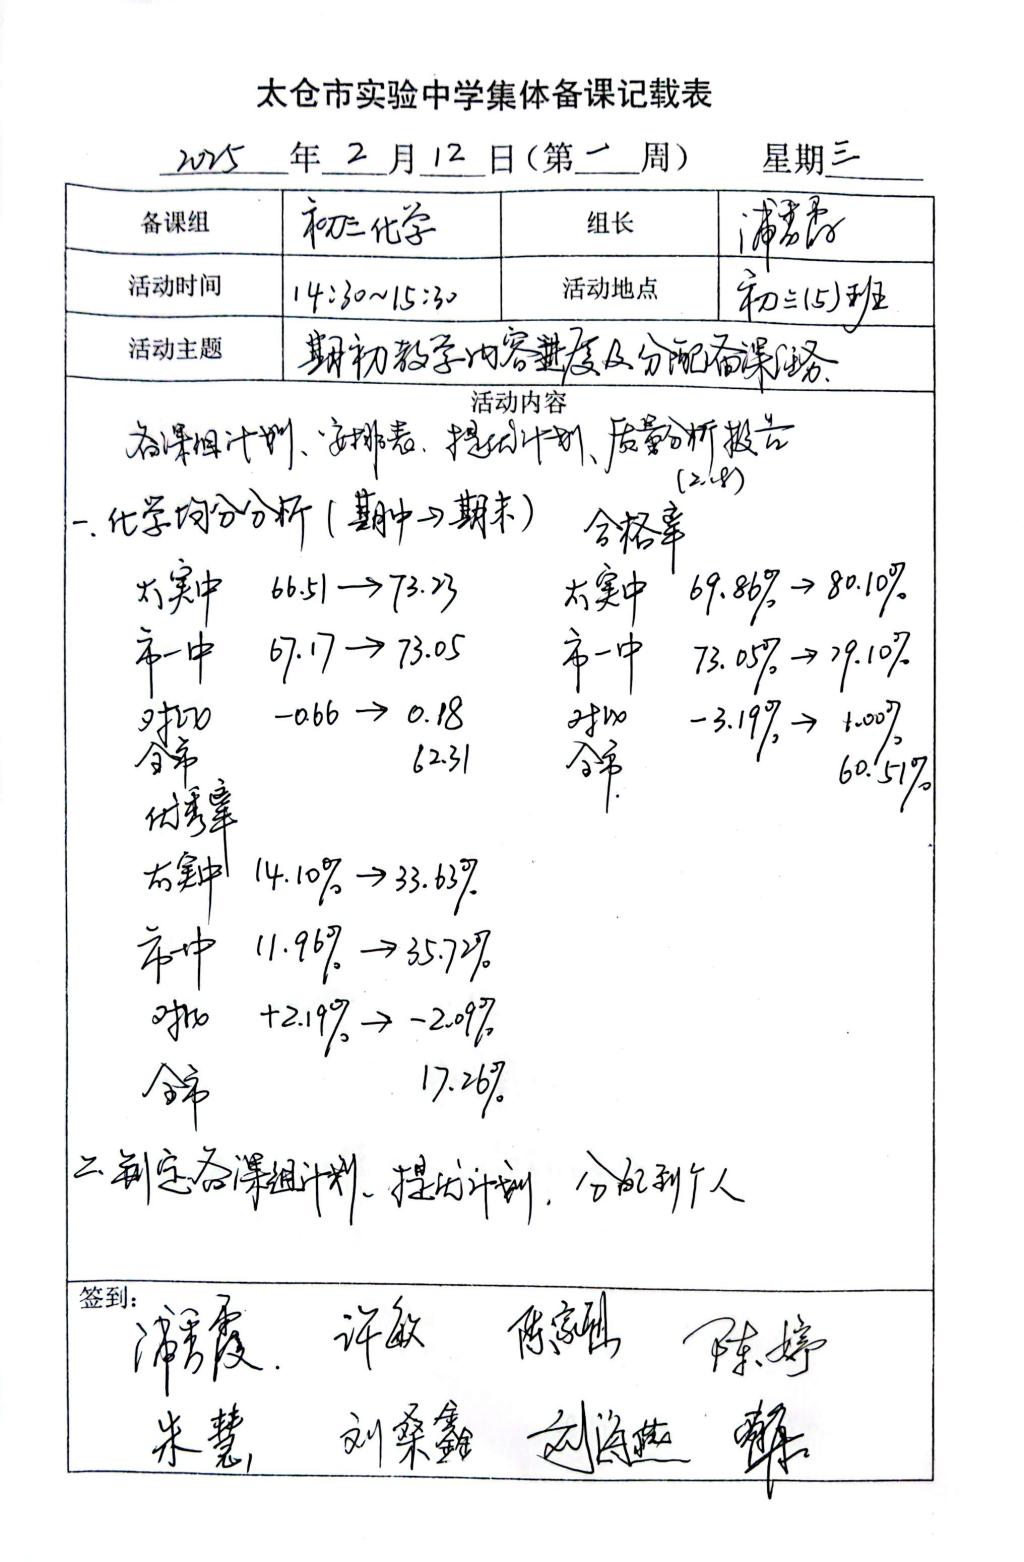 太仓市实验中学集体备课记载表
2025年2月12日(第一周) 星期三
备课组 初三化学 组长 浦秀霞
活动时间 14:30~15:30 活动地点 初三(5)班
活动主题 期初教学内容进度及分配备课任务.
活动内容
备课组计划、安排表、提优计划、质量分析报告
(2.18)
一.化学均分分析(期中→期末) 合格率
太实中 66.51→73.23 太实中 69.86%→80.10%
市一中 67.17→73.05 市一中 73.05%→79.10%
对比 -0.66→0.18 对比 -3.19%→1.00%
全市 62.31 全市 60.51%
优秀率
太实中 14.10%→33.63%
市一中 11.96%→35.72%
对比 +2.19%→-2.09%
全市 17.26%
二.制定备课组计划、提优计划,分配到个人
签到:
浦秀霞. 许敏 陈家 陈婷
朱慧 刘桑鑫 刘海燕